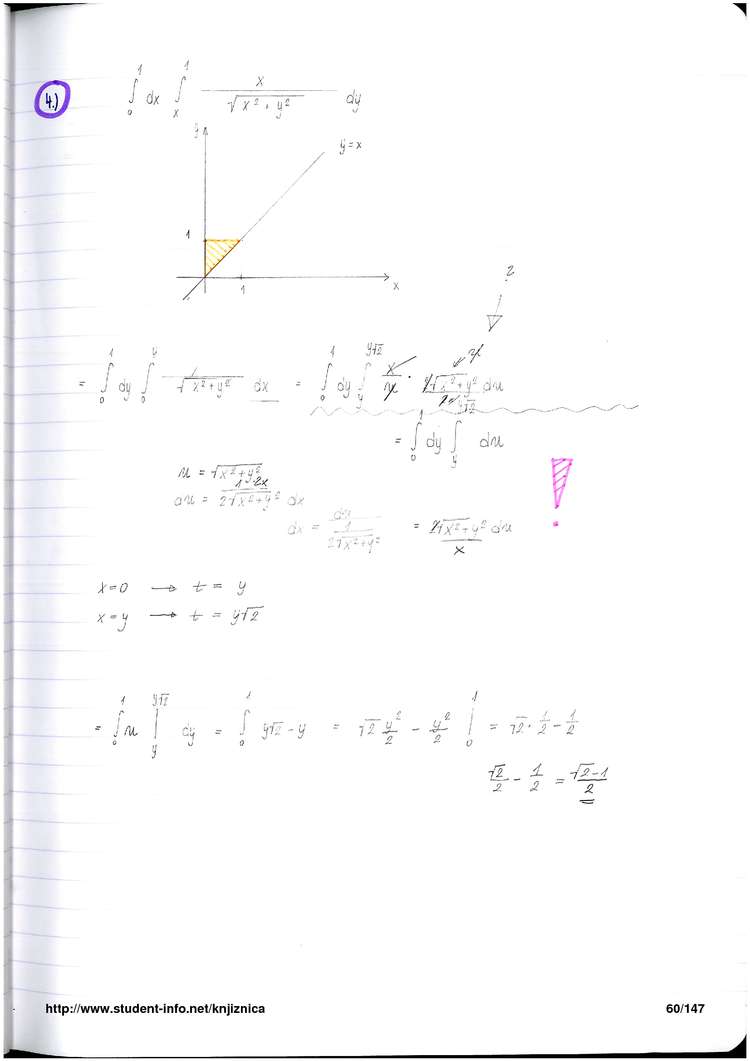 4.) ∫₀¹ dx ∫ₓ¹ x / √(x² + y²) dy
y
y = x
1
x
1
?
= ∫₀¹ dy ∫₀^y x / √(x² + y²) dx = ∫₀¹ dy ∫_y^(y√2) x / u · √(x² + y²) / x du
= ∫₀¹ dy ∫_y^(y√2) du
!
u = √(x² + y²)
du = 1·2x / 2√(x² + y²) dx
dx = du / (1 / 2√(x² + y²)) = 2√(x² + y²) du / x
x = 0 → t = y
x = y → t = y√2
= ∫₀¹ u |_y^(y√2) dy = ∫₀¹ y√2 - y = √2 y²/2 - y²/2 |₀¹ = √2 · 1/2 - 1/2
√2/2 - 1/2 = √2-1/2
http://www.student-info.net/knjiznica 60/147